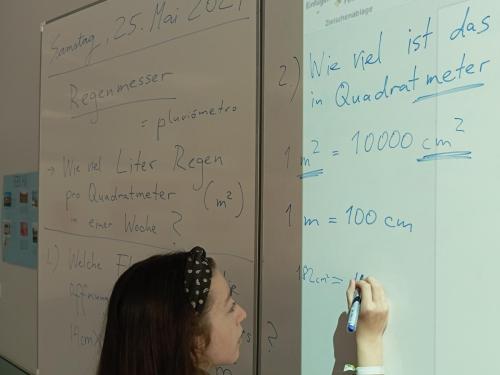 Samstag, 25. Mai
Regenmesser
= pluviómetro
→ Wie viel Liter Regen
pro Quadratmeter (m²)
in einer Woche?
1.) Welche
Öffnung
Einfügen
Zwischenablage
2.) Wie viel ist das
in Quadratmeter
1 m² = 10000 cm²
1 m = 100 cm
182cm² =
?